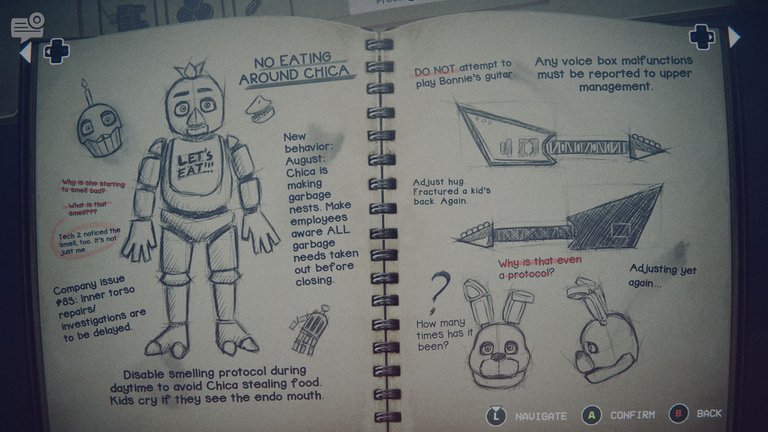 NO EATING
AROUND CHICA
LET'S
EAT!!!
Why is she starting
to smell bad?
What is that
smell???
Tech 2 noticed the
smell, too. It's not
just me.
Company issue
#83: Inner torso
repairs/
investigations are
to be delayed.
New
behavior:
August:
Chica is
making
garbage
nests. Make
employees
aware ALL
garbage
needs taken
out before
closing.
Disable smelling protocol during
daytime to avoid Chica stealing food.
Kids cry if they see the endo mouth.
DO NOT attempt to
play Bonnie's guitar.
Any voice box malfunctions
must be reported to upper
management.
Adjust hug.
Fractured a kid's
back. Again.
Why is that even
a protocol?
Adjusting yet
again...
?
How many
times has it
been?
L NAVIGATE A CONFIRM B BACK